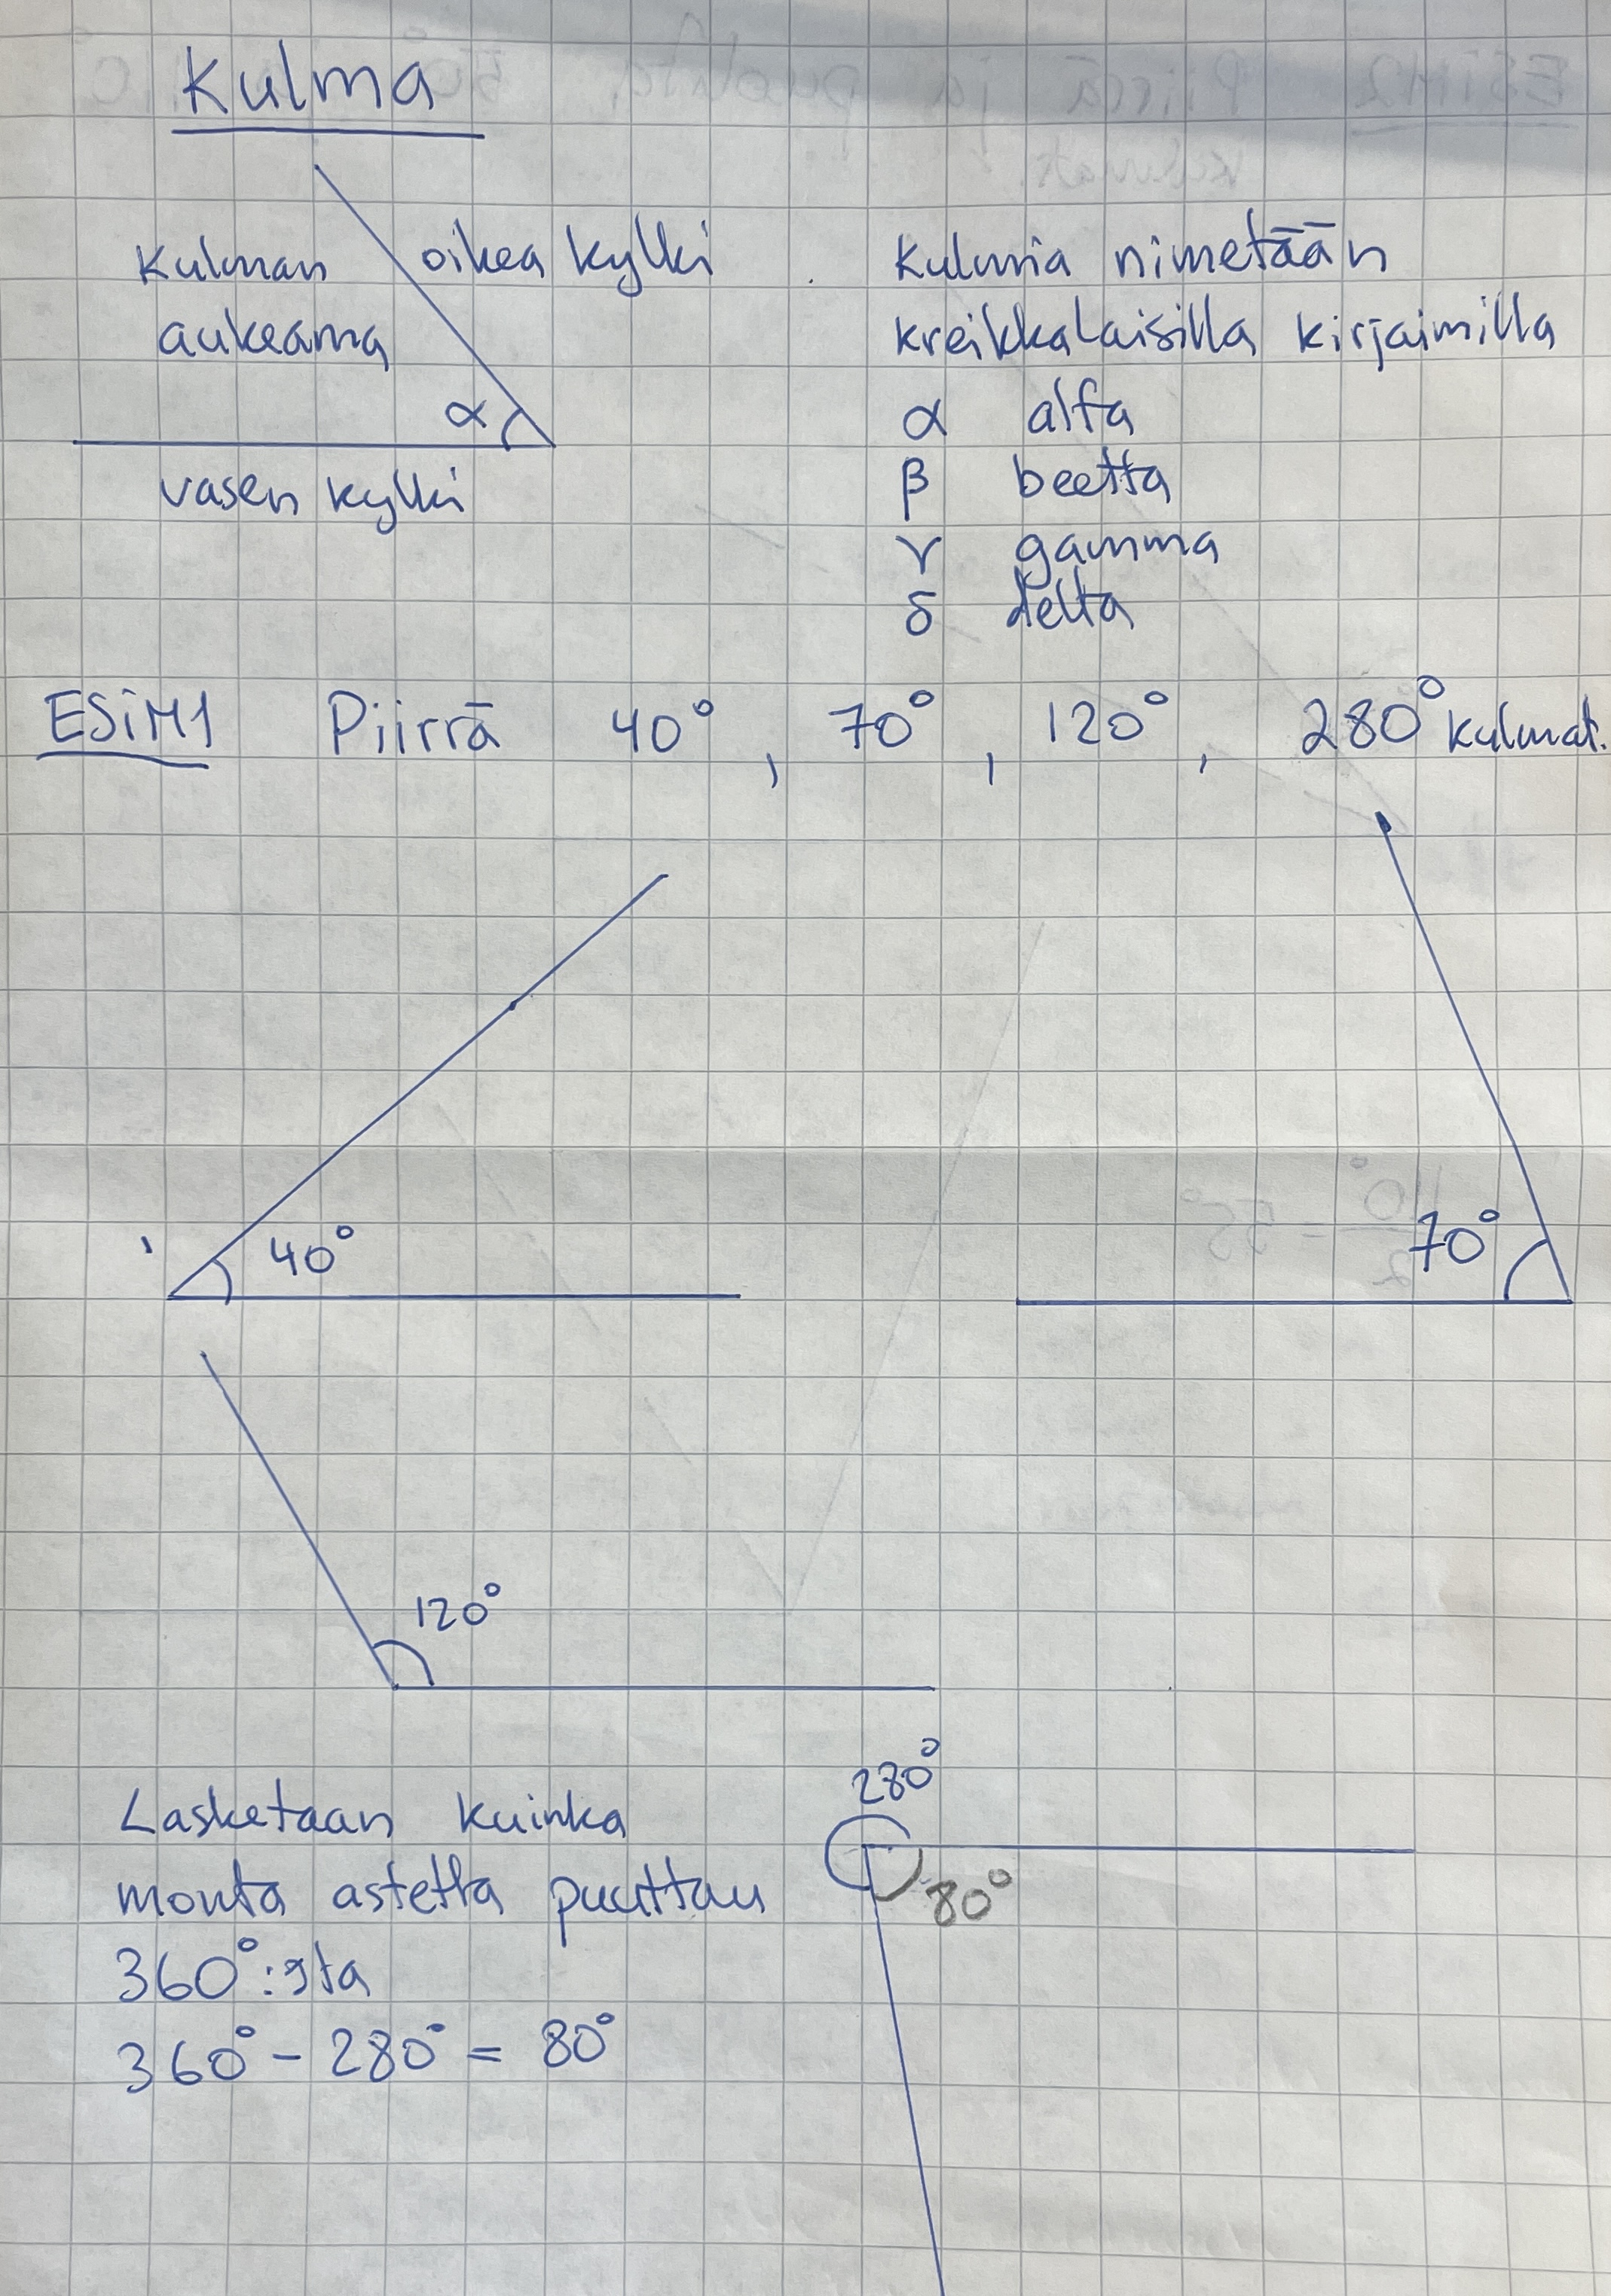 Kulma
Kulman
aukeama
oikea kylki
α
vasen kylki
Kulmia nimetään
kreikkalaisilla kirjaimilla
α alfa
β beetta
γ gamma
δ delta
ESIM1 Piirrä 40°, 70°, 120°, 280° kulmat.
40°
70°
120°
280°
80°
Lasketaan kuinka
monta astetta puuttuu
360°:sta
360° - 280° = 80°